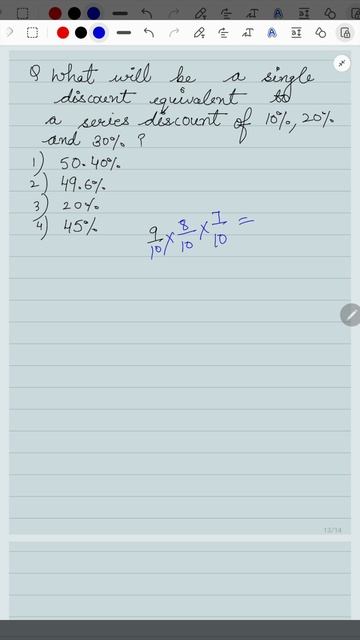 Q What will be a single
discount equivalent to
a series discount of 10%, 20%
and 30% ?
1) 50.40%
2) 49.6%
3) 20%
4) 45%
9/10 × 8/10 × 7/10 =
13/14